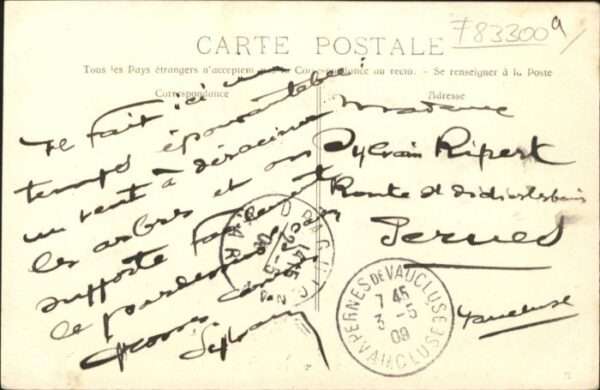 783300 a/
CARTE POSTALE
Tous les Pays étrangers n'acceptent pas la Correspondance au recto. - Se renseigner à la Poste
Correspondance
Adresse
Il fait ici un
temps épouvantable
un vent à déraciner
les arbres et on
supporte facilement
le pardessus
Sylvain
Madame
Sylvain Ripert
Route de
Pernes
Vaucluse
PERNES DE VAUCLUSE
7 45
3 - 5
09
VAUCLUSE